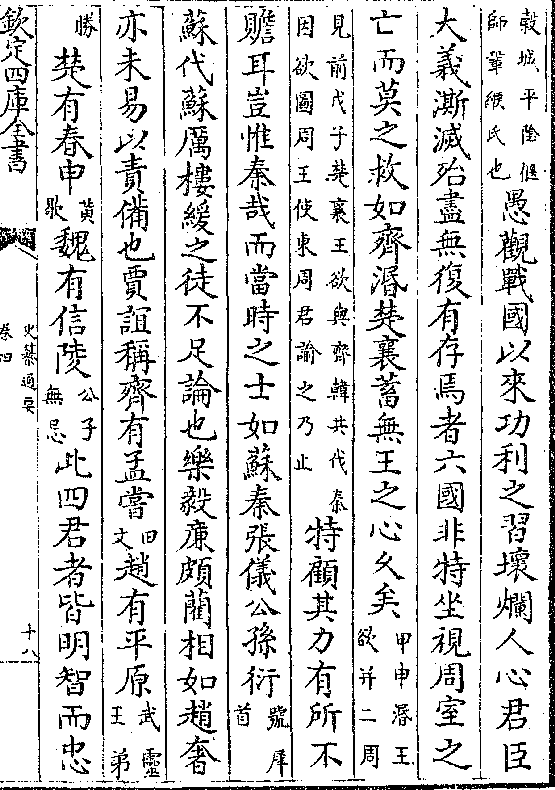 穀城平陰偃
師鞏緱氏也
愚觀戰國以來功利之習壞爛人心君臣
大義澌滅殆盡無復有存焉者六國非特坐視周室之
亡而莫之救如齊湣楚襄蓄無王之心久矣
甲申湣王
欲并二周
見前戊子楚襄王欲與齊韓共伐秦
因欲圖周王使東周君諭之乃止
特顧其力有所不
贍耳豈惟秦哉而當時之士如蘇秦張儀公孫衍
號犀
首
蘇代蘇厲樓緩之徒不足論也樂毅廉頗藺相如趙奢
亦未易以責備也賈誼稱齊有孟嘗
田
文
趙有平原
武靈
王弟
勝
楚有春申
黄
歇
魏有信陵
公子
無忌
此四君者皆明智而忠
欽定四庫全書
史纂通要
卷四
十八